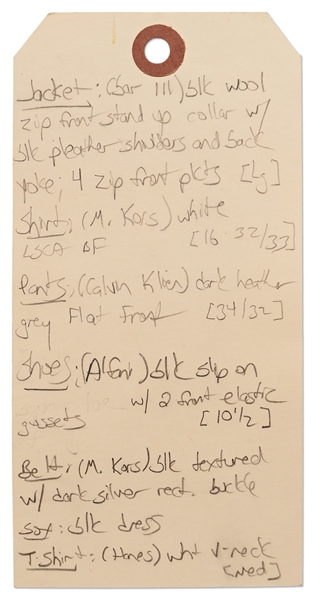 Jacket: (Bar III) blk wool
zip front stand up collar w/
blk pleather shulders and back
yoke; 4 zip front pkts [Lg]
Shirt; (M. Kors) white
LSCA DF [16 32/33]
Pants; (Calvin Klien) dark heather
grey Flat Front [34/32]
Shoes; (Alfani) blk slip on
w/ 2 front elastic
gussets [10 1/2]
Belt; (M. Kors) blk textured
w/ dark silver rect. buckle
Sox: blk dress
T-Shirt: (Hanes) wht V-neck
[med]